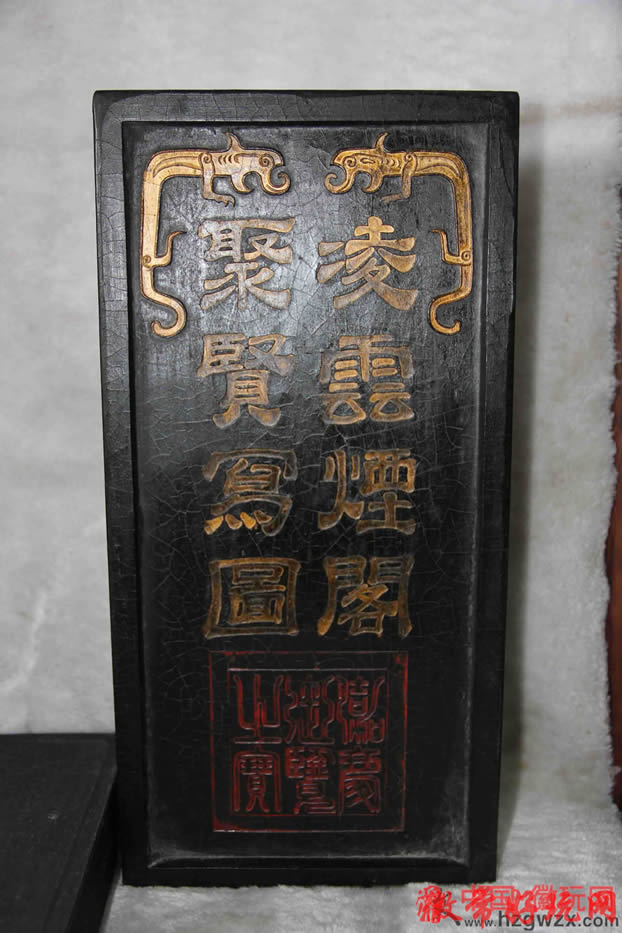 凌雲煙閣
聚賢寫圖
慶
御覽
之寶
www.hzgwzx.com